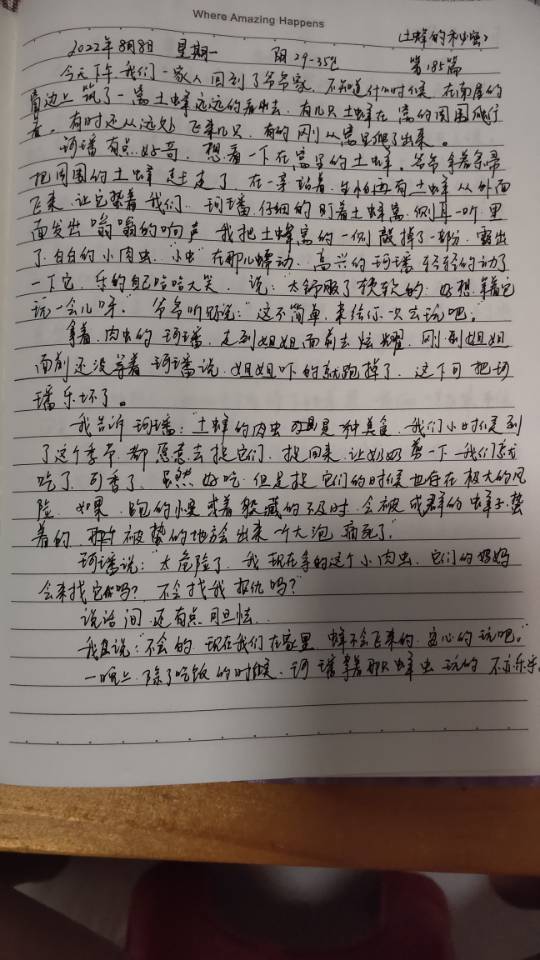 Where Amazing Happens
(土蜂的秘密)
2022年8月8日 星期一 阴 29-35℃ 第185篇
今天下午我们一家人回到了爷爷家，不知道什么时候，在南屋的
窗边上筑了一窝土蜂远远的看去，有几只土蜂在窝的周围飞行
着。有时还从远处飞来几只，有的刚从窝里爬了出来。
珂璠有点好奇，想看一下在窝里的土蜂。爷爷拿着笤帚
把周围的土蜂赶走了，在一旁站着，生怕再有土蜂从外面
飞来，让它蛰着我们，珂璠仔细的盯着土蜂窝，侧耳一听，里
面发出嗡嗡的响声，我把土蜂窝的一侧敲掉了一部分，露出
了白白的小肉虫，“小虫”在那儿蠕动，高兴的珂璠轻轻的动了
一下它，乐的自己哈哈大笑，说：“太舒服了软软的，好想拿着它
玩一会儿呀。”爷爷听后说：“这不简单，来给你一只去玩吧。”
拿着肉虫的珂璠，走到姐姐面前去炫耀，刚到姐姐
面前还没等着珂璠说，姐姐吓的就跑掉了，这下可把珂
璠乐坏了。
我告诉珂璠：“土蜂的肉虫可是一种美食，我们小时候到
了这个季节都愿意去捉它们，捉回来，让奶奶煎一下我们就
吃了，可香了，虽然好吃，但是捉它们的时候也存在极大的风
险，如果跑的慢或着躲藏的不及时，会被成群的蜂子蛰
着的，那个被蛰的地方会出来一个大泡，痛死了。”
珂璠说：“太危险了，我现在拿的这个小肉虫，它们的妈妈
会来找它们吗？不会找我报仇吗？”
说话间，还有点胆怯
我说：“不会的，现在我们在家里，蜂不会飞来的，安心的玩吧。”
一晚上，除了吃饭的时候，珂璠拿着那只蜂虫玩的不亦乐乎